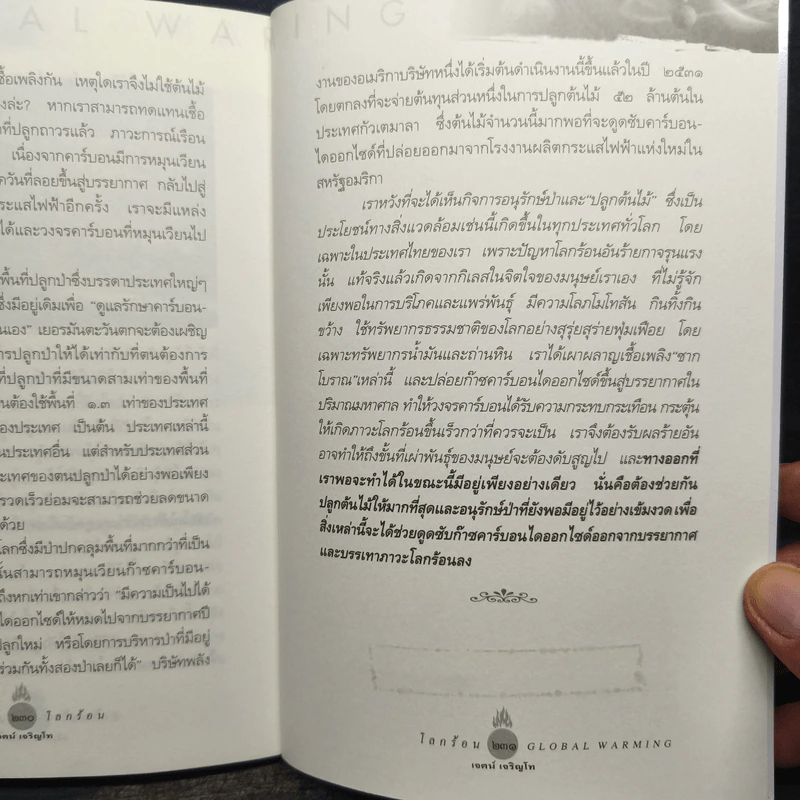 AL WARING
ชื้อเพลิงกัน เหตุใดเราจึงไม่ใช้ต้นไม้
งล่ะ? หากเราสามารถทดแทนเชื้อ
าที่ปลูกถาวรแล้ว ภาวะการณ์เรือน
เนื่องจากคาร์บอนมีการหมุนเวียน
ควันที่ลอยขึ้นสู่บรรยากาศ กลับไปสู่
ระแสไฟฟ้าอีกครั้ง เราจะมีแหล่ง
ได้และวงจรคาร์บอนที่หมุนเวียนไป
พื้นที่ปลูกป่าซึ่งบรรดาประเทศใหญ่ๆ
ซึ่งมีอยู่เดิมเพื่อ “ดูแลรักษาคาร์บอน-
นเอง” เยอรมันตะวันตกจะต้องเผชิญ
ารปลูกป่าให้ได้เท่ากับที่ตนต้องการ
ที่ปลูกป่าที่มีขนาดสามเท่าของพื้นที่
นต้องใช้พื้นที่ ๑.๓ เท่าของประเทศ
องประเทศ เป็นต้น ประเทศเหล่านี้
นประเทศอื่น แต่สำหรับประเทศส่วน
ะเทศของตนปลูกป่าได้อย่างพอเพียง
รวดเร็วย่อมจะสามารถช่วยลดขนาด
ด้วย
โลกซึ่งมีป่าปกคลุมพื้นที่มากกว่าที่เป็น
นั้นสามารถหมุนเวียนก๊าซคาร์บอน-
ถึงหกเท่าเขากล่าวว่า “มีความเป็นไปได้
ไดออกไซด์ให้หมดไปจากบรรยากาศปี
ปลูกใหม่ หรือโดยการบริหารป่าที่มีอยู่
ร่วมกันทั้งสองป่าเลยก็ได้” บริษัทพลัง
๒๓๐ โลกร้อน
เจตน์ เจริญโท
งานของอเมริกาบริษัทหนึ่งได้เริ่มต้นดำเนินงานนี้ขึ้นแล้วในปี ๒๕๓๑
โดยตกลงที่จะจ่ายต้นทุนส่วนหนึ่งในการปลูกต้นไม้ ๕๒ ล้านต้นใน
ประเทศกัวเตมาลา ซึ่งต้นไม้จำนวนนี้มากพอที่จะดูดซับคาร์บอน-
ไดออกไซด์ที่ปล่อยออกมาจากโรงงานผลิตกระแสไฟฟ้าแห่งใหม่ใน
สหรัฐอมริกา
เราหวังที่จะได้เห็นกิจการอนุรักษ์ป่าและ“ปลูกต้นไม้” ซึ่งเป็น
ประโยชน์ทางสิ่งแวดล้อมเช่นนี้เกิดขึ้นในทุกประเทศทั่วโลก โดย
เฉพาะในประเทศไทยของเรา เพราะปัญหาโลกร้อนอันร้ายกาจรุนแรง
นั้น แท้จริงแล้วเกิดจากกิเลสในจิตใจของมนุษย์เราเอง ที่ไม่รู้จัก
เพียงพอในการบริโภคและแพร่พันธุ์ มีความโลภโมโทสัน กินทิ้งกิน
ขว้าง ใช้ทรัพยากรธรรมชาติของโลกอย่างสุรุ่ยสุร่ายฟุ่มเฟือย โดย
เฉพาะทรัพยากรน้ำมันและถ่านหิน เราได้เผาผลาญเชื้อเพลิง“ซาก
โบราณ”เหล่านี้ และปล่อยก๊าซคาร์บอนไดออกไซด์ขึ้นสู่บรรยากาศใน
ปริมาณมหาศาล ทำให้วงจรคาร์บอนได้รับความกระทบกระเทือน กระตุ้น
ให้เกิดภาวะโลกร้อนขึ้นเร็วกว่าที่ควรจะเป็น เราจึงต้องรับผลร้ายอัน
อาจทำให้ถึงขั้นที่เผ่าพันธุ์ของมนุษย์จะต้องดับสูญไป และทางออกที่
เราพอจะทำได้ในขณะนี้มีอยู่เพียงอย่างเดียว นั่นคือต้องช่วยกัน
ปลูกต้นไม้ให้มากที่สุดและอนุรักษ์ป่าที่ยังพอมีอยู่ไว้อย่างเข้มงวด เพื่อ
สิ่งเหล่านี้จะได้ช่วยดูดซับก๊าซคาร์บอนไดออกไซด์ออกจากบรรยากาศ
และบรรเทาภาวะโลกร้อนลง
โลกร้อน ๒๓๑ GLOBAL WARMING
เจตน์ เจริญโท